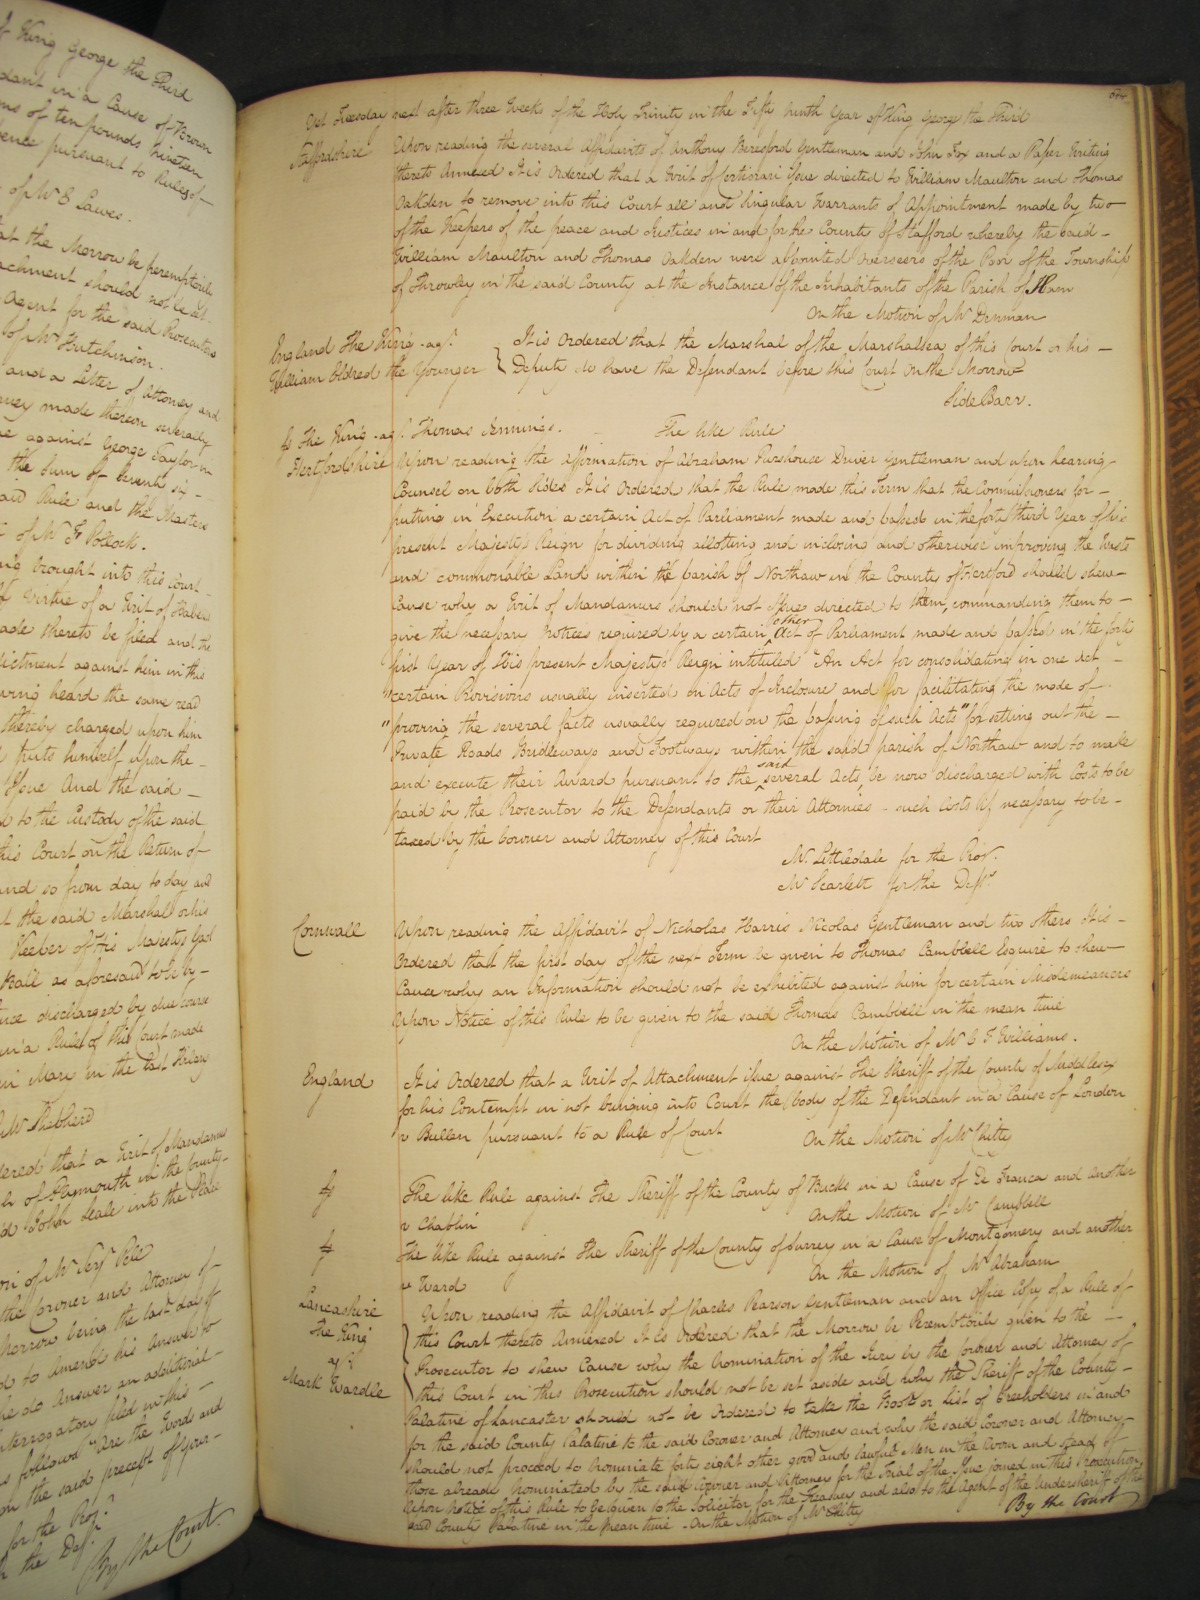 f King George the Third
dant in a Cause of Brown
ms of ten pounds nineteen
pence pursuant to Rules of
of Mr E Lawes.
at the Morrow be peremptorily
achment should not be set
Agent for the said Prosecutors
of Mr Hutchinson.
and a Letter of Attorney and
ney made thereon severally
against George Taylor in
the Sum of Seventy six
aid Rule and the Masters
of Mr F Pollock.
ng brought into this Court
of virtue of a Writ of Habeas
ade thereto be filed and the
dictment against him in this
aving heard the same read
thereby charged upon him
puts himself upon the
Issue And the said
to the Custody of the said
this Court on the Return of
and so from day to day and
the said Marshal or his
Keeper of His Majestys Gaol
Ball as aforesaid to be by
nce discharged by due course
in a Rule of this Court made
in Man in the last
Mr Shepherd
dered that a Writ of Mandamus
of Plymouth in the County
John Seale into the Place
on of Mr Serjt Pell
the Coroner and Attorney of
morrow being the last day of
to Amend his Answer to
he do Answer an additional
nterrogatory filed in this
as follows "Are the Words and
on the said precept of your
for the Pror.
the Deft.
By the Court
Yet Tuesday next after three Weeks of the Holy Trinity in the Fifty ninth Year of King George the Third
Staffordshire Upon reading the several Affidavits of Anthony Beresford Gentleman and John Fox and a Paper Writing
thereto Annexed It is Ordered that a Writ of Certiorari Issue directed to William Maulton and Thomas
Oakden to remove into this Court all and singular Warrants of Appointment made by two
of the Keepers of the peace and Justices in and for the County of Stafford whereby the said
William Maulton and Thomas Oakden were appointed Overseers of the Poor of the Township
of Throwley in the said County at the Instance of the Inhabitants of the Parish of Ilam
On the Motion of Mr Denman
England The King agt. It is Ordered that the Marshal of the Marshalsea of this Court or his
William Eldred the Younger Deputy do have the Defendant before this Court On the Morrow
Side Barr.
The King agt. Thomas Jennings. The like Rule
Hertfordshire Upon reading the Affirmation of Abraham Purshouse Driver Gentleman and upon hearing
Counsel on both sides It is Ordered that the Rule made this Term that the Commissioners for
putting in Execution a certain Act of Parliament made and passed in the forty third Year of his
present Majestys Reign for dividing allotting and inclosing and otherwise improving the Waste
and commonable Land within the parish of Northaw in the County of Hertford should shew
Cause why a Writ of Mandamus should not Issue directed to them commanding them to
give the necessary Notices required by a certain other Act of Parliament made and passed in the forty
first Year of His present Majestys Reign intituled "An Act for consolidating in one Act
"certain Provisions usually inserted in Acts of Inclosure and for facilitating the mode of
"proving the several facts usually required on the passing of such Acts" for setting out the
Private Roads Bridleways and Footways within the said parish of Northaw and to make
and execute their Award pursuant to the said several Acts, be now discharged with Costs to be
paid by the Prosecutor to the Defendants or their Attornies - such Costs if necessary to be
taxed by the Coroner and Attorney of this Court
Mr Littledale for the Pror.
Mr Scarlett for the Defts.
Cornwall Upon reading the Affidavit of Nicholas Harris Nicolas Gentleman and two others It is
Ordered that the first day of the next Term be given to Thomas Campbell Esquire to shew
Cause why an Information should not be exhibited against him for certain Misdemeanors
Upon Notice of this Rule to be given to the said Thomas Campbell in the mean time
On the Motion of Mr C F Williams.
England It is Ordered that a Writ of Attachment issue against The Sheriff of the County of Middlesex
for his Contempt in not bringing into Court the body of the Defendant in a Cause of London
v Bullen pursuant to a Rule of Court On the Motion of Mr Chitty
The like Rule against The Sheriff of the County of Bucks in a Cause of De Franca and another
v Chaplin On the Motion of Mr Campbell
The like Rule against The Sheriff of the County of Surrey in a Cause of Montgomery and another
v Ward On the Motion of Mr Abraham
Lancashire Upon reading the Affidavit of Charles Pearson Gentleman and an Office Copy of a Rule of
The King this Court thereto Annexed It is Ordered that the Morrow be Peremptorily given to the
agt. Prosecutor to shew Cause why the Nomination of the Jury by the Coroner and Attorney of
Mark Wardle this Court in this Prosecution should not be set aside and why the Sheriff of the County
Palatine of Lancaster should not be Ordered to take the Book or List of Freeholders in and
for the said County Palatine to the said Coroner and Attorney and why the said Coroner and Attorney
should not proceed to Nominate forty eight other good and lawful Men in the room and stead of
those already Nominated by the said Coroner and Attorney for the Trial of the Issue joined in this Prosecution
Upon Notice of this Rule to be given to the Solicitor for the Treasury and also to the Agent of the Undersheriff of the
said County Palatine in the Mean time - On the Motion of Mr Chitty
By the Court